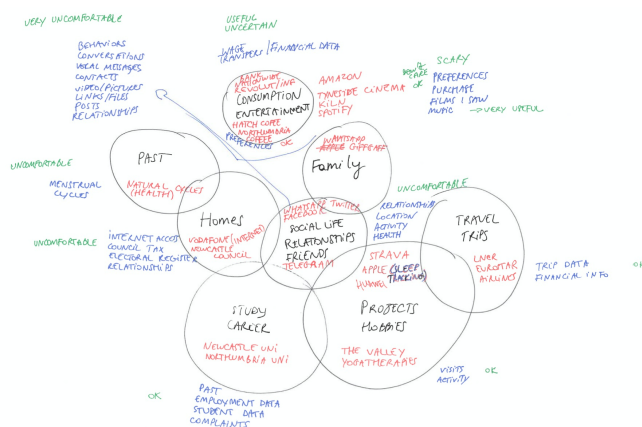 VERY UNCOMFORTABLE
BEHAVIORS
CONVERSATIONS
VOCAL MESSAGES
CONTACTS
VIDEO/PICTURES
LINKS/FILES
POSTS
RELATIONSHIPS
USEFUL
UNCERTAIN
WAGE
TRANSFERS/FINANCIAL DATA
BANK
NATIONWIDE
CONSUMPTION
ENTERTAINMENT
HATCH COFEE
NORTHUMBRIA
COFFEE
PREFERENCES OK
AMAZON
TYNESIDE CINEMA
KILN
SPOTIFY
DON'T
CARE
OK
SCARY
PREFERENCES
PURCHASE
FILMS I SAW
MUSIC → VERY USEFUL
PAST
NATURAL CYCLES
(HEALTH)
UNCOMFORTABLE
MENSTRUAL
CYCLES
WHATSAPP
APPLE GIFFGAFF
Family
Homes
VODAFONE (INTERNET)
NEWCASTLE
COUNCIL
UNCOMFORTABLE
INTERNET ACCES
COUNCIL TAX
ELECTORAL REGISTER
RELATIONSHIPS
WHATSAPP TWITTER
FACEBOOK
SOCIAL LIFE
RELATIONSHIPS
FRIENDS
TELEGRAM
UNCOMFORTABLE
RELATIONSHIP
LOCATION
ACTIVITY
HEALTH
TRAVEL
TRIPS
LNER
EUROSTAR
AIRLINES
TRIP DATA
FINANCIAL INFO
STRAVA
APPLE (SLEEP
TRACKING)
HUAWEI
PROJECTS
HOBBIES
THE VALLEY
YOGATHERAPIES
VISITS
ACTIVITY
OK
STUDY
CAREER
NEWCASTLE UNI
NORTHUMBRIA UNI
OK
PAST
EMPLOYMENT DATA
STUDENT DATA
COMPLAINTS